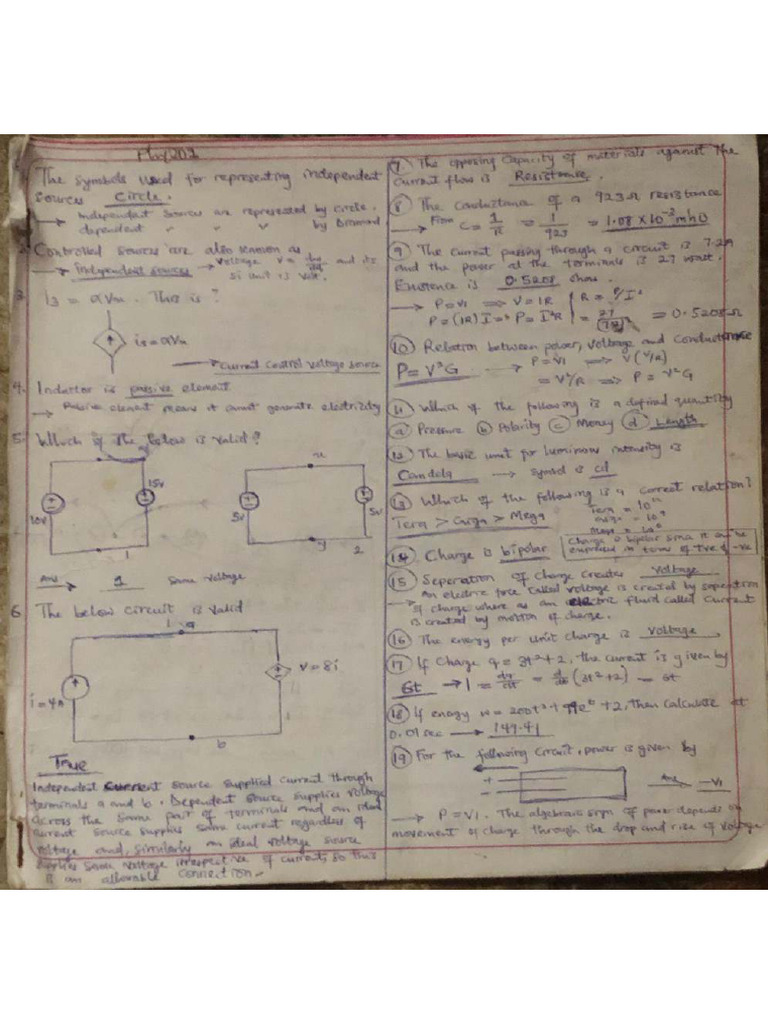 The symbols used for representing independent
sources Circle.
→ Independent sources are represented by circle.
dependent " " " by Diamond
2. Controlled sources are also known as
→ Independent sources → Voltage V = and its
Si unit is Volt.
3. I3 = αVm. This is?
i3 = αVm
→ Current control voltage source
4. Inductor is passive element
→ Passive element means it cannot generate electricity
5. Which of the below is valid?
10V
15V
1
5V
5V
x
y
2
Ans → 1 Same voltage
6. The below circuit is valid
a
i = 4A
V = 8i
b
True
Independent current source supplied current through
terminals a and b. Dependent source supplies voltage
across the same pair of terminals and an ideal
current source supplies same current regardless of
voltage and, similarly an ideal voltage source
supplies same voltage irrespective of current, so this
is an allowable connection.
7 The opposing capacity of materials against the
current flow is Resistance.
8 The conductance of a 923Ω resistance
→ From = 1/923 = 1.08 × 10⁻³ mho
9 The current passing through a circuit is 7.2A
and the power at the terminals is 27 watt.
0.5208 ohm.
→ P = VI ⟹ V = IR | R = P/I²
P = (IR)I ⟹ P = I²R | = 0.5208Ω
10 Relation between power, voltage and conductance
P = V²G → P = VI ⟹ V(V/R)
= V²/R ⟹ P = V²G
11 Which of the following is a defined quantity
a Pressure b Polarity c Money d Length
12 The basic unit for luminous intensity is
Candela → Symbol is cd
13 Which of the following is a correct relation?
Tera > Giga > Mega
14 Charge is bipolar
Charge is bipolar since it can be
expressed in terms of +ve & -ve
15 Seperation of charge creates Voltage
→ An electric force called voltage is created by seperation
of charge where as an electric fluid called current
is created by motion of charge.
16 The energy per unit charge is Voltage
17 If Charge q = 3t²+2, the current is given by
6t → I = dq/dt = d/dt (3t²+2) = 6t
18 If energy w = 200t² + + 2, then calculate at
0.01 sec → 149.41
19 For the following circuit, power is given by
+
-
Ans -VI
→ P = VI. The algebraic sign of power depends on
movement of charge through the drop and rise of voltage